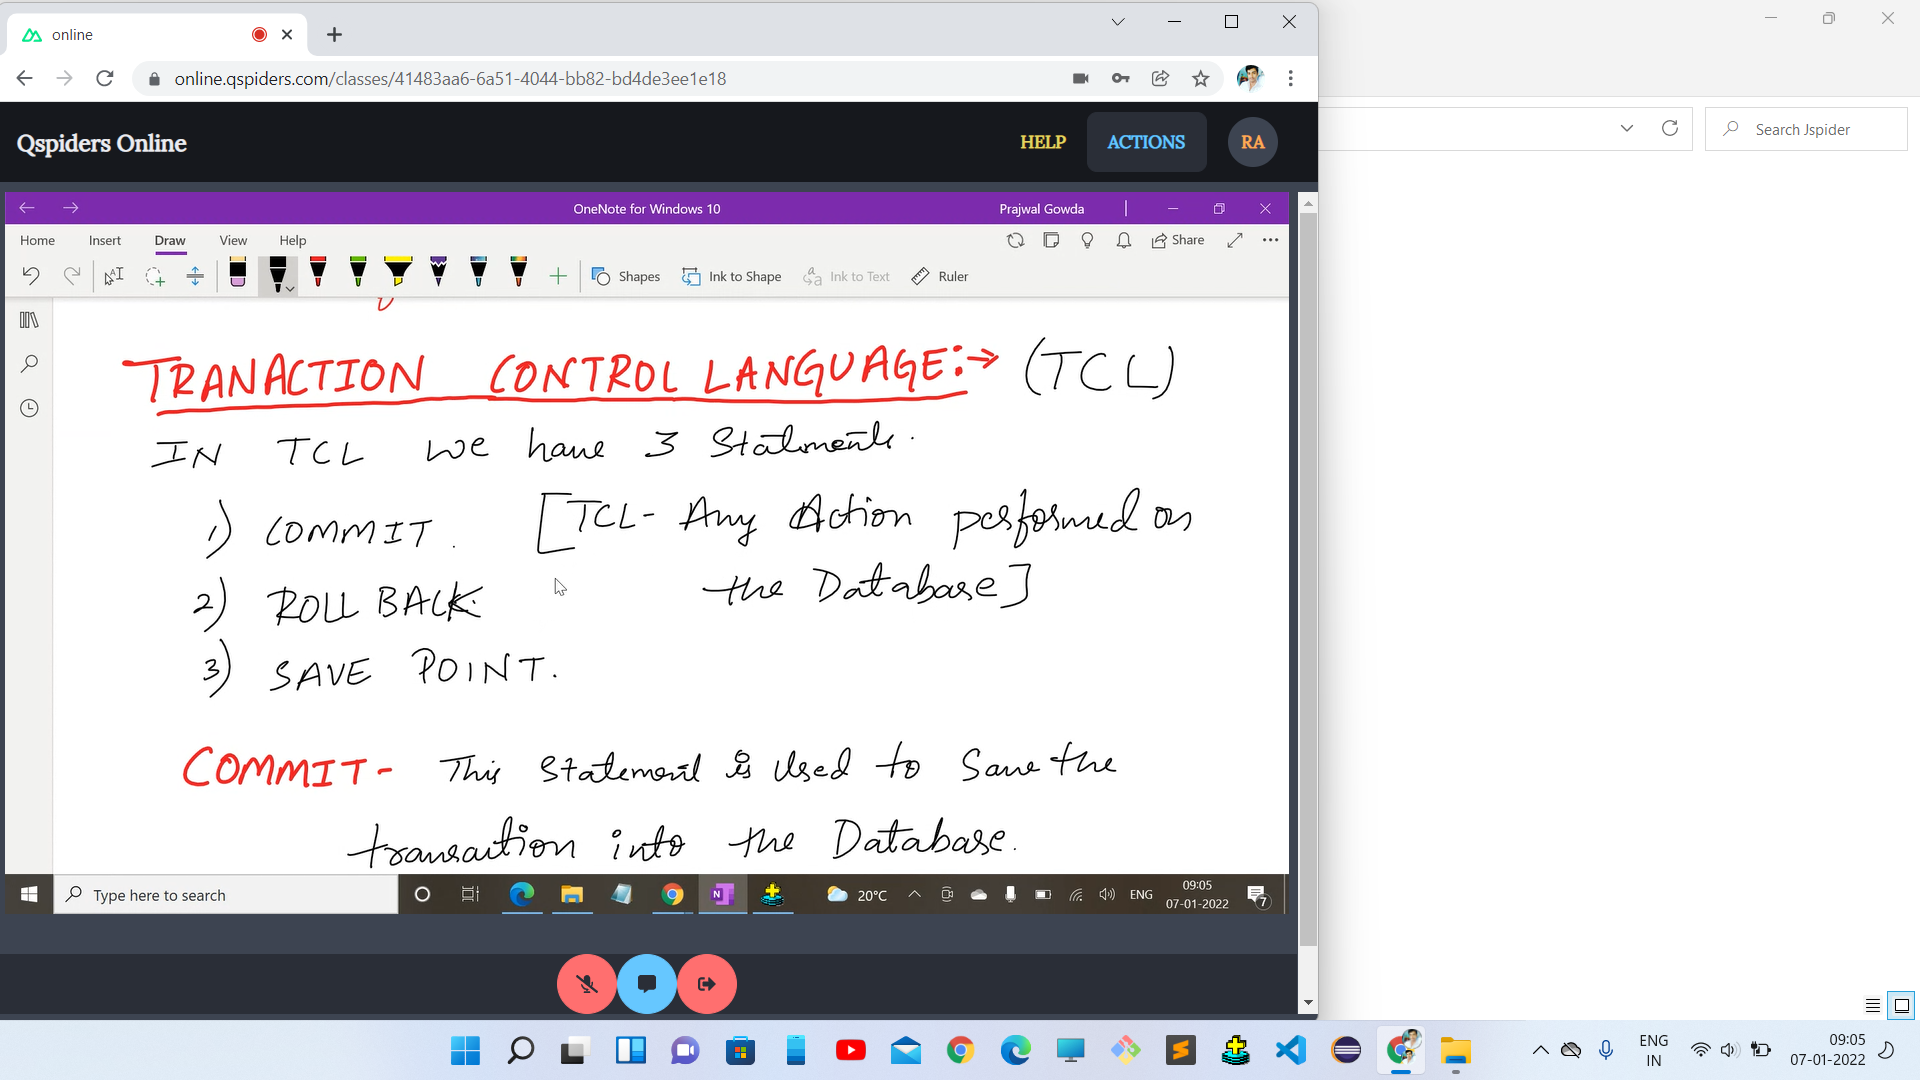 online
online.qspiders.com/classes/41483aa6-6a51-4044-bb82-bd4de3ee1e18
Search Jspider
Qspiders Online
HELP
ACTIONS
RA
OneNote for Windows 10
Prajwal Gowda
Home Insert Draw View Help
Share
Shapes Ink to Shape Ink to Text Ruler
TRANACTION CONTROL LANGUAGE:→ (TCL)
IN TCL we have 3 Statements.
1) COMMIT. [TCL- Any Action performed on
2) ROLL BACK. the Database]
3) SAVE POINT.
COMMIT- This Statement is Used to Save the
transaction into the Database.
Type here to search
20°C
ENG
09:05
07-01-2022
7
ENG
IN
09:05
07-01-2022